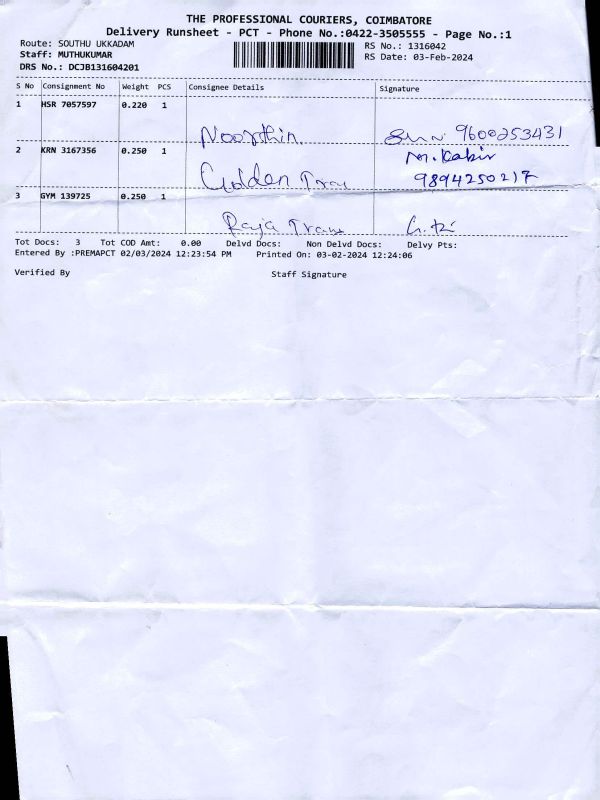 THE PROFESSIONAL COURIERS, COIMBATORE
Delivery Runsheet - PCT - Phone No.:0422-3505555 - Page No.:1
Route: SOUTHU UKKADAM RS No.: 1316042
Staff: MUTHUKUMAR RS Date: 03-Feb-2024
DRS No.: DCJB131604201
S No Consignment No Weight PCS Consignee Details Signature
1 HSR 7057597 0.220 1
9600253431
2 KRN 3167356 0.250 1 M. Kabir
Golden 9894250217
3 GYM 139725 0.250 1
Raja Trans
Tot Docs: 3 Tot COD Amt: 0.00 Delvd Docs: Non Delvd Docs: Delvy Pts:
Entered By :PREMAPCT 02/03/2024 12:23:54 PM Printed On: 03-02-2024 12:24:06
Verified By Staff Signature